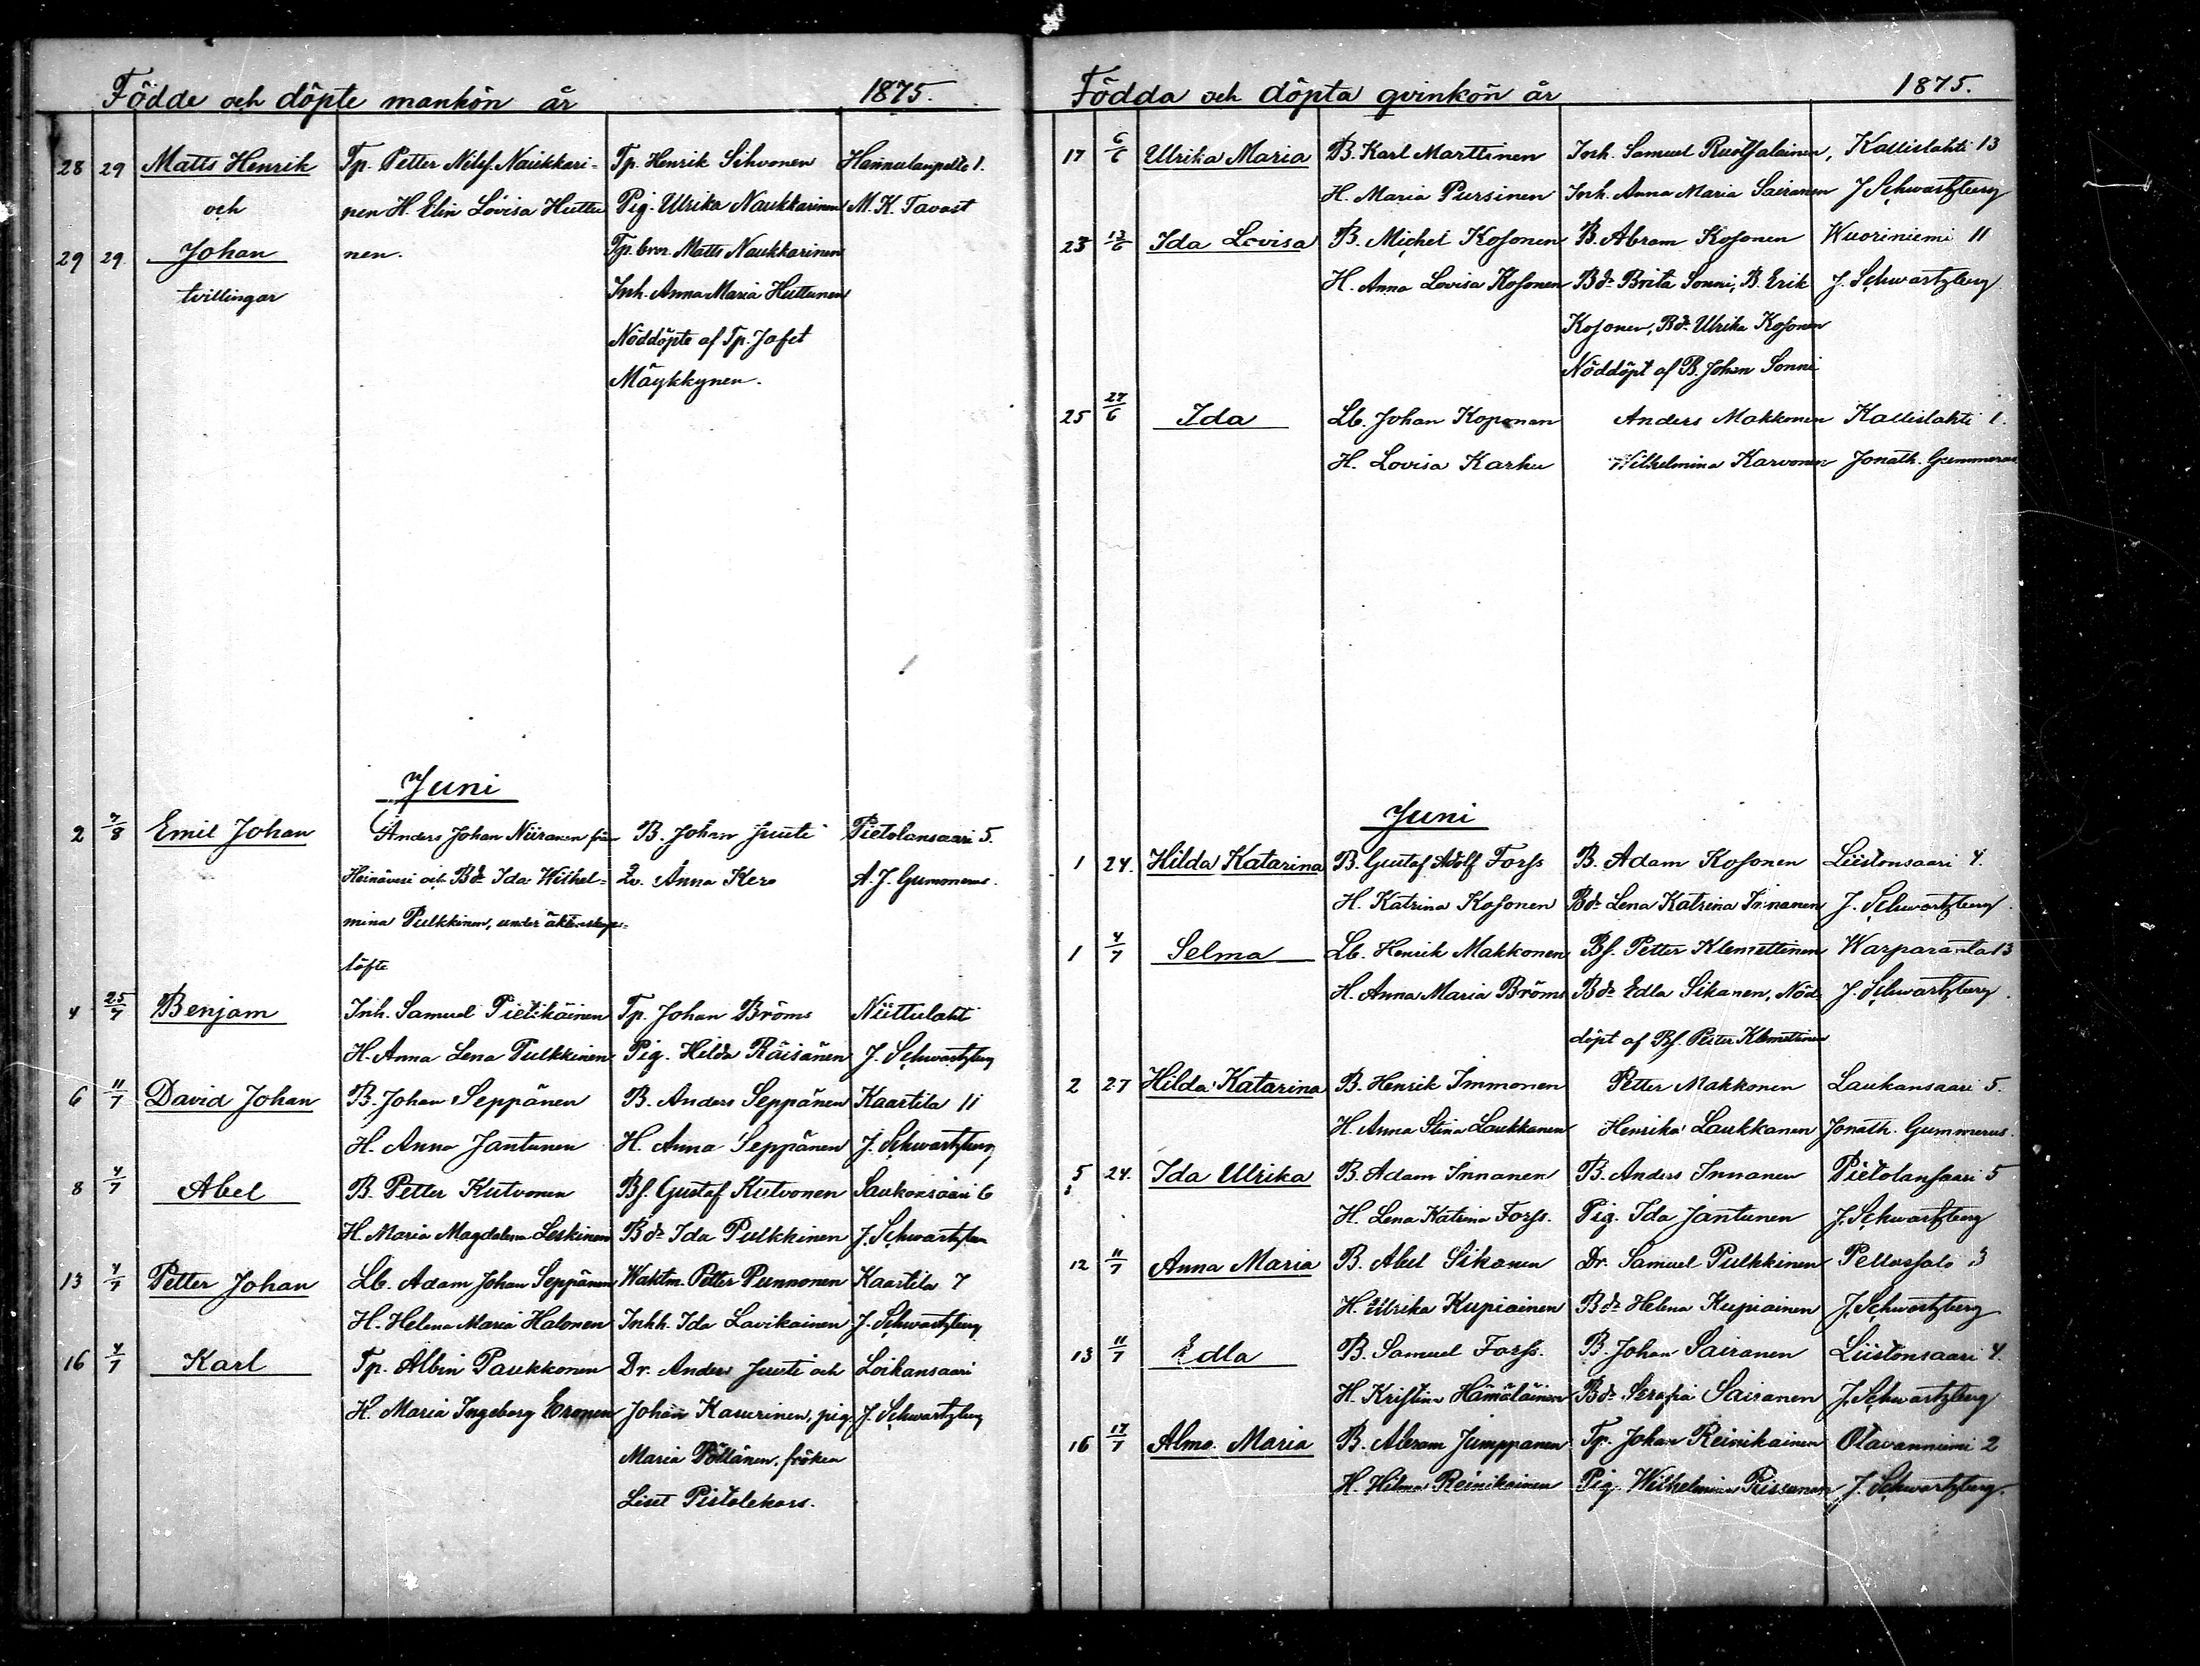 Födde och döpte mankön år 1875.
28 29 Matts Henrik Tp. Petter Nilsf. Naukkari- Tp. Henrik Sihvonen Hannulanpelto 1.
och nen H. Elin Lovisa Huttu Pig. Ulrika Naukkarinen M. K. Tavast
29 29 Johan nen. Tp. bror. Matts Naukkarinen
tvillingar Inh. Anna Maria Huttunen
Nöddöpte af Tp. Jafet
Mäykkynen.
Juni
2 7/8 Emil Johan Anders Johan Niiranen från B. Johan Juuti Pietolansaari 5.
Heinävesi och Bdr Ida Wilhel= Anna Kero A. J. Gummerus.
mina Pulkkinen, under äktenskaps=
löfte
4 25/7 Benjam Inh. Samuel Pietikäinen Tp. Johan Bröms Niittulahti
H. Anna Lena Pulkkinen Pig. Hilda Räisänen J. Schwartzberg
6 11/7 David Johan B. Johan Seppänen B. Anders Seppänen Kaartila 11
H. Anna Jantunen H. Anna Seppänen J. Schwartzberg
8 4/7 Abel B. Petter Kutvonen Bf. Gustaf Kutvonen Saukonsaari 6
H. Maria Magdalena Leskinen Bdr Ida Pulkkinen J. Schwartzber
13 4/7 Petter Johan Lb. Adam Johan Seppänen Waktm. Petter Punnonen Kaartila 7
H. Helena Maria Halonen Inhh. Ida Lavikainen J. Schwartzberg
16 4/7 Karl Tp. Albin Paukkonen Dr. Anders Juuti och Loikansaari
H. Maria Ingeborg Eronen Johan Kaurinen, pig. J. Schwartzberg
Maria Pöllänen, fröken
Liset Pistolekors.
Födda och döpta qvinkön år 1875.
17 6/6 Ulrika Maria B. Karl Marttinen Inh. Samuel Ruotsalainen, Kallislahti 13
H. Maria Pursinen Inh. Anna Maria Sairanen J. Schwartzberg
23 13/6 Ida Lovisa B. Michel Kosonen B. Abram Kosonen Wuoriniemi 11
H. Anna Lovisa Kosonen Bdr Brita Sonni, B. Erik J. Schwartzberg
Kosonen, Bdr Ulrika Kosonen
Nöddöpt af B. Johan Sonni
25 27/6 Ida Lb. Johan Koponen Anders Makkonen Kallislahti 1.
H. Lovisa Karhu Wilhelmina Karvonen Jonath. Gummerus
Juni
1 24. Hilda Katarina B. Gustaf Adolf Forss B. Adam Kosonen Liistonsaari 4.
H. Katrina Kosonen Bdr Lena Katrina Innanen J. Schwartzberg.
1 4/7 Selma Lb. Henrik Makkonen Bf. Petter Klemettinen Warparanta 13
H. Anna Maria Bröms Bdr Edla Sikanen, Nöd= J. Schwartzberg.
döpt af Bf. Petter Klemettinen
2 27 Hilda Katarina B. Henrik Immonen Petter Makkonen Laukansaari 5.
H. Anna Stina Laukkanen Henrika Laukkanen Jonath. Gummerus.
5 24. Ida Ulrika B. Adam Innanen B. Anders Innanen Pietolansaari 5
H. Lena Katrina Forss. Pig. Ida Jantunen J. Schwartzberg
12 11/7 Anna Maria B. Abel Sikanen Dr. Samuel Pulkkinen Pellossalo 3
H. Ulrika Kupiainen Bdr Helena Kupiainen J. Schwartzberg
13 11/7 Edla B. Samuel Forss. B. Johan Sairanen Liistonsaari 4.
H. Kristina Hämäläinen Bdr Serafia Sairanen J. Schwartzberg
16 17/7 Alma Maria B. Abram Jumppanen Tp. Johan Reinikainen Otavanniemi 2
H. Hilma Reinikainen Pig. Wilhelmina Rissanen J. Schwartzberg.